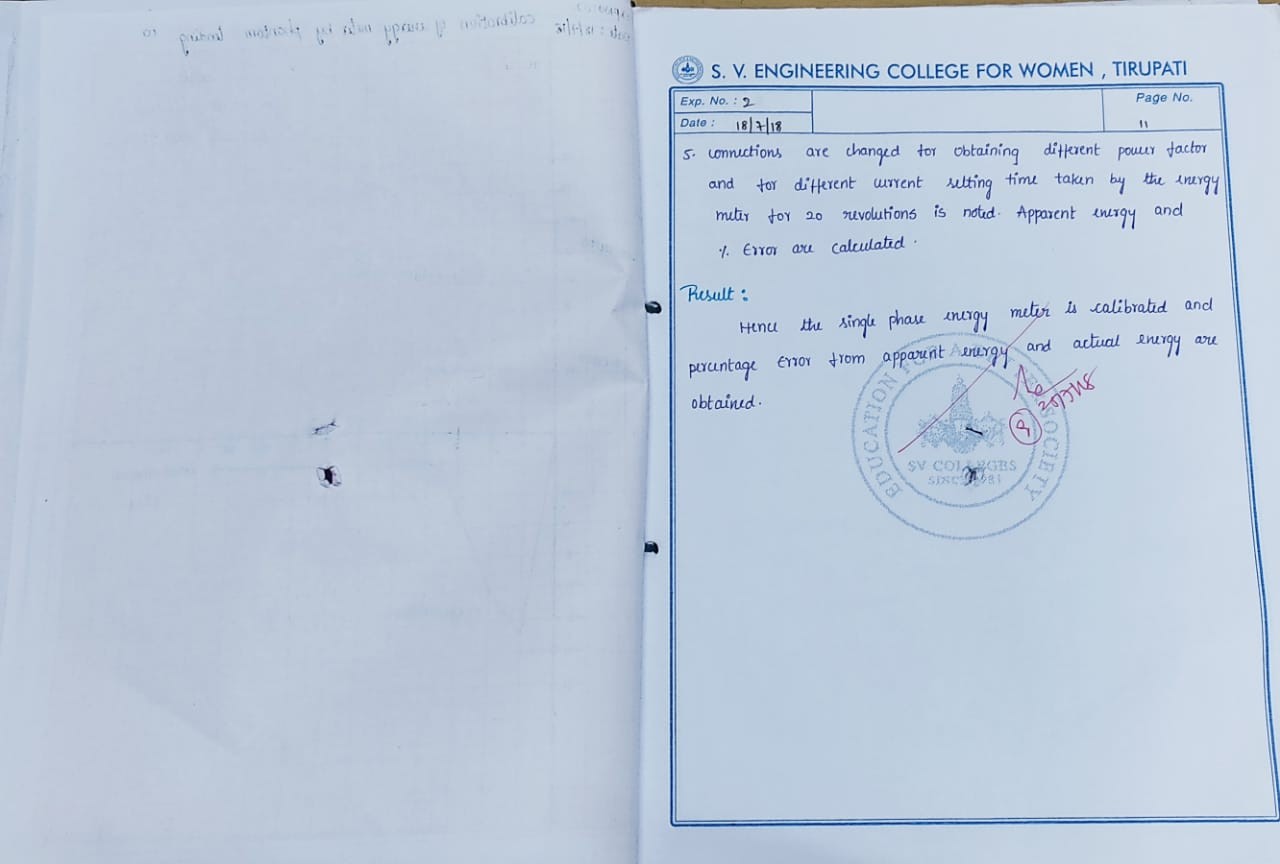 calibration of energy meter by phantom loading
S. V. ENGINEERING COLLEGE FOR WOMEN , TIRUPATI
Exp. No. : 2
Page No.
Date : 18/7/18
11
5. connections are changed for obtaining different power factor
and for different current setting time taken by the energy
meter for 20 revolutions is noted. Apparent energy and
% Error are calculated.
Result :
Hence the single phase energy meter is calibrated and
percentage Error from apparent energy and actual energy are
obtained.
9
EDUCATION FOR A SOCIETY
SV COLLEGES
SINCE 1981